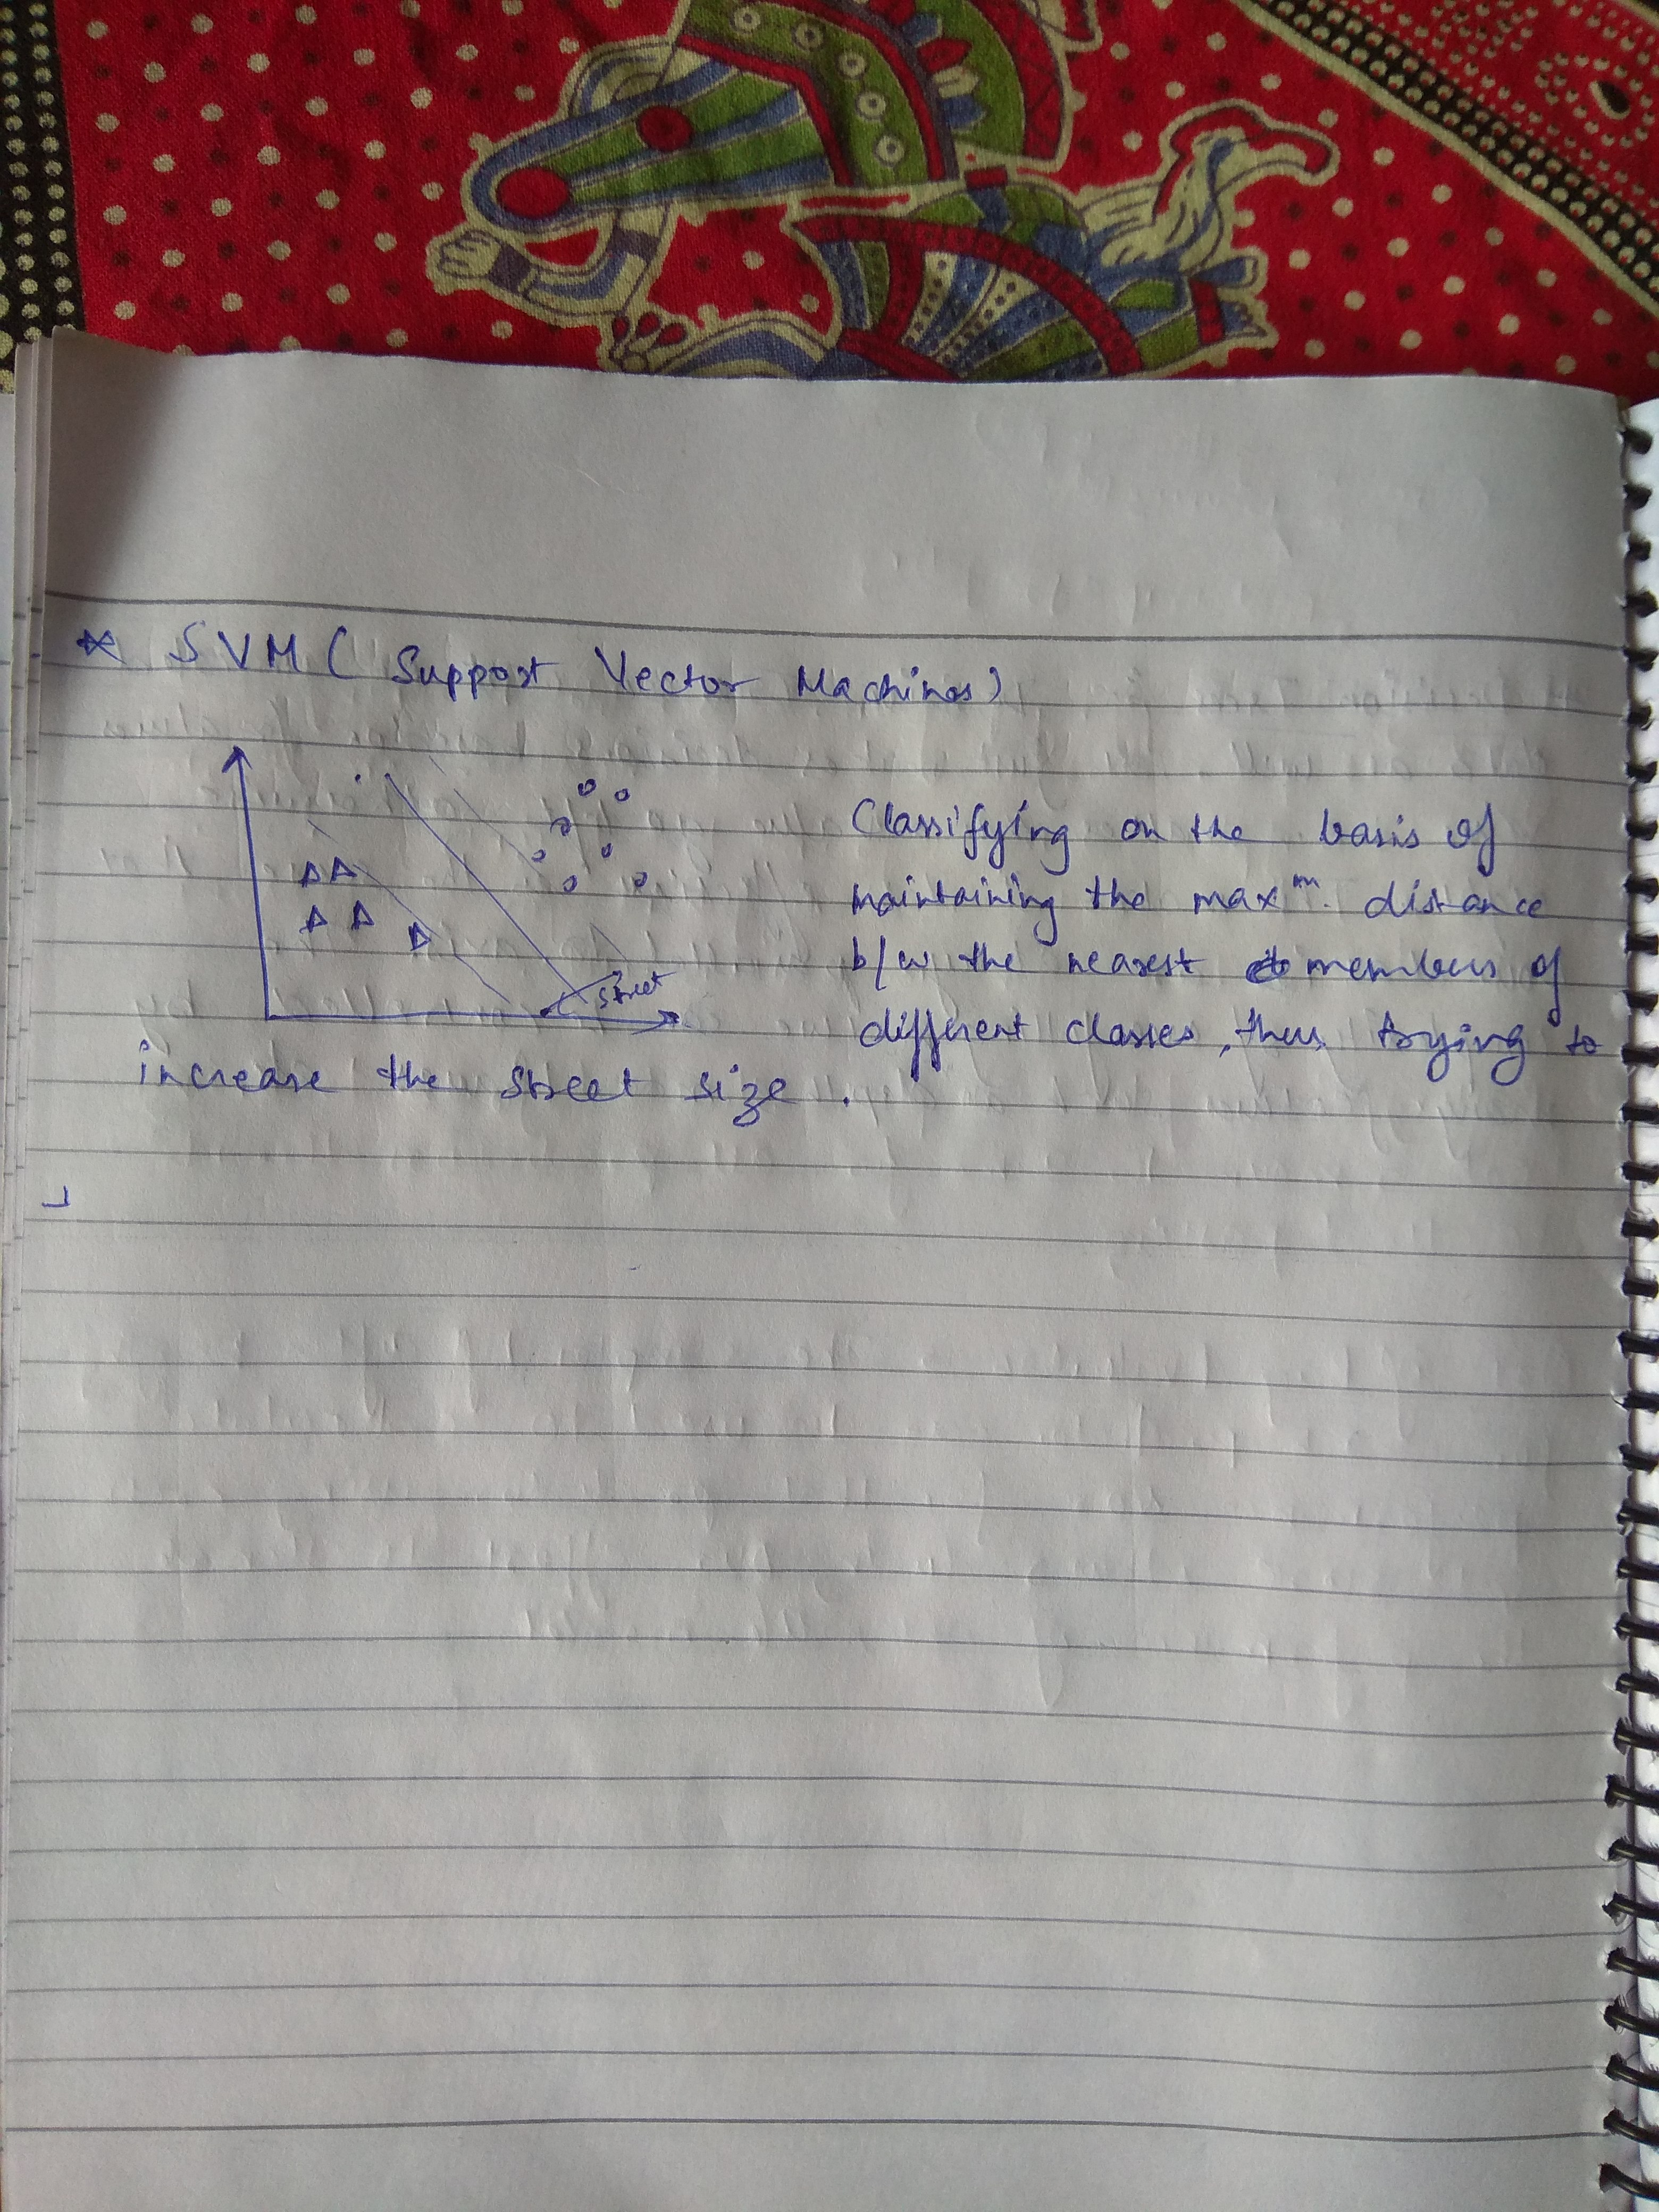 * SVM ( Support Vector Machines)
Classifying on the basis of
maintaining the maxm. distance
b/w the nearest members of
street
different classes, thus trying to
increase the street size .